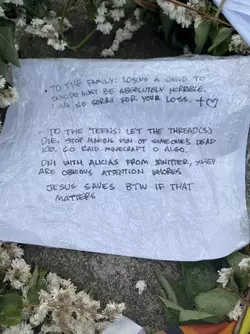 • TO THE FAMILY: LOSING A CHILD TO
SUICIDE MUST BE ABSOLUTELY HORRIBLE.
I AM SO SORRY FOR YOUR LOSS. + ♡
• TO THE TEENS: LET THE THREAD(S)
DIE. STOP MAKING FUN OF SOMEONE'S DEAD
KID. GO RAID MINECRAFT O ALGO.
DNI WITH ALICIAS FROM TWITTER, THEY
ARE OBVIOUS ATTENTION WHORES.
JESUS SAVES BTW IF THAT
MATTERS